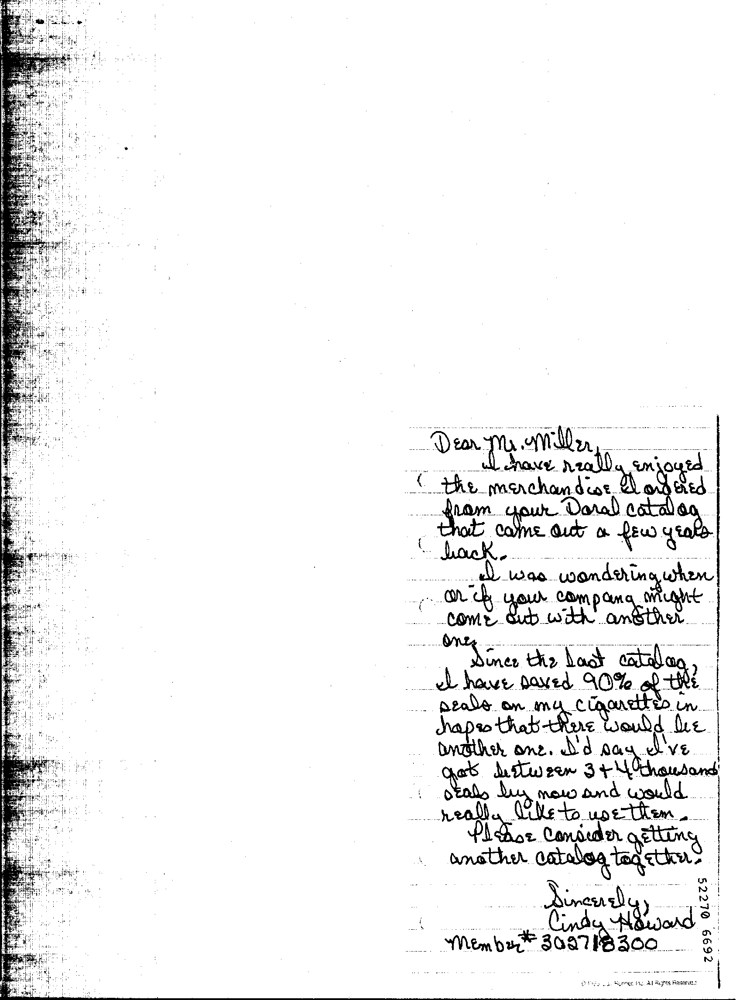 Dear Mr. Miller,
I have really enjoyed
the merchandise I ordered
from your Doral catalog
that came out a few years
back.
I was wondering when
or if your company might
come out with another
one.
Since the last catalog,
I have saved 90% of the
seals on my cigarettes in
hopes that there would be
another one. I'd say I've
got between 3+4 thousand
seals by now and would
really like to use them.
Please consider getting
another catalog together.
Sincerely,
Cindy Howard
Member # 302718300
52270 6692
All Rights Reserved